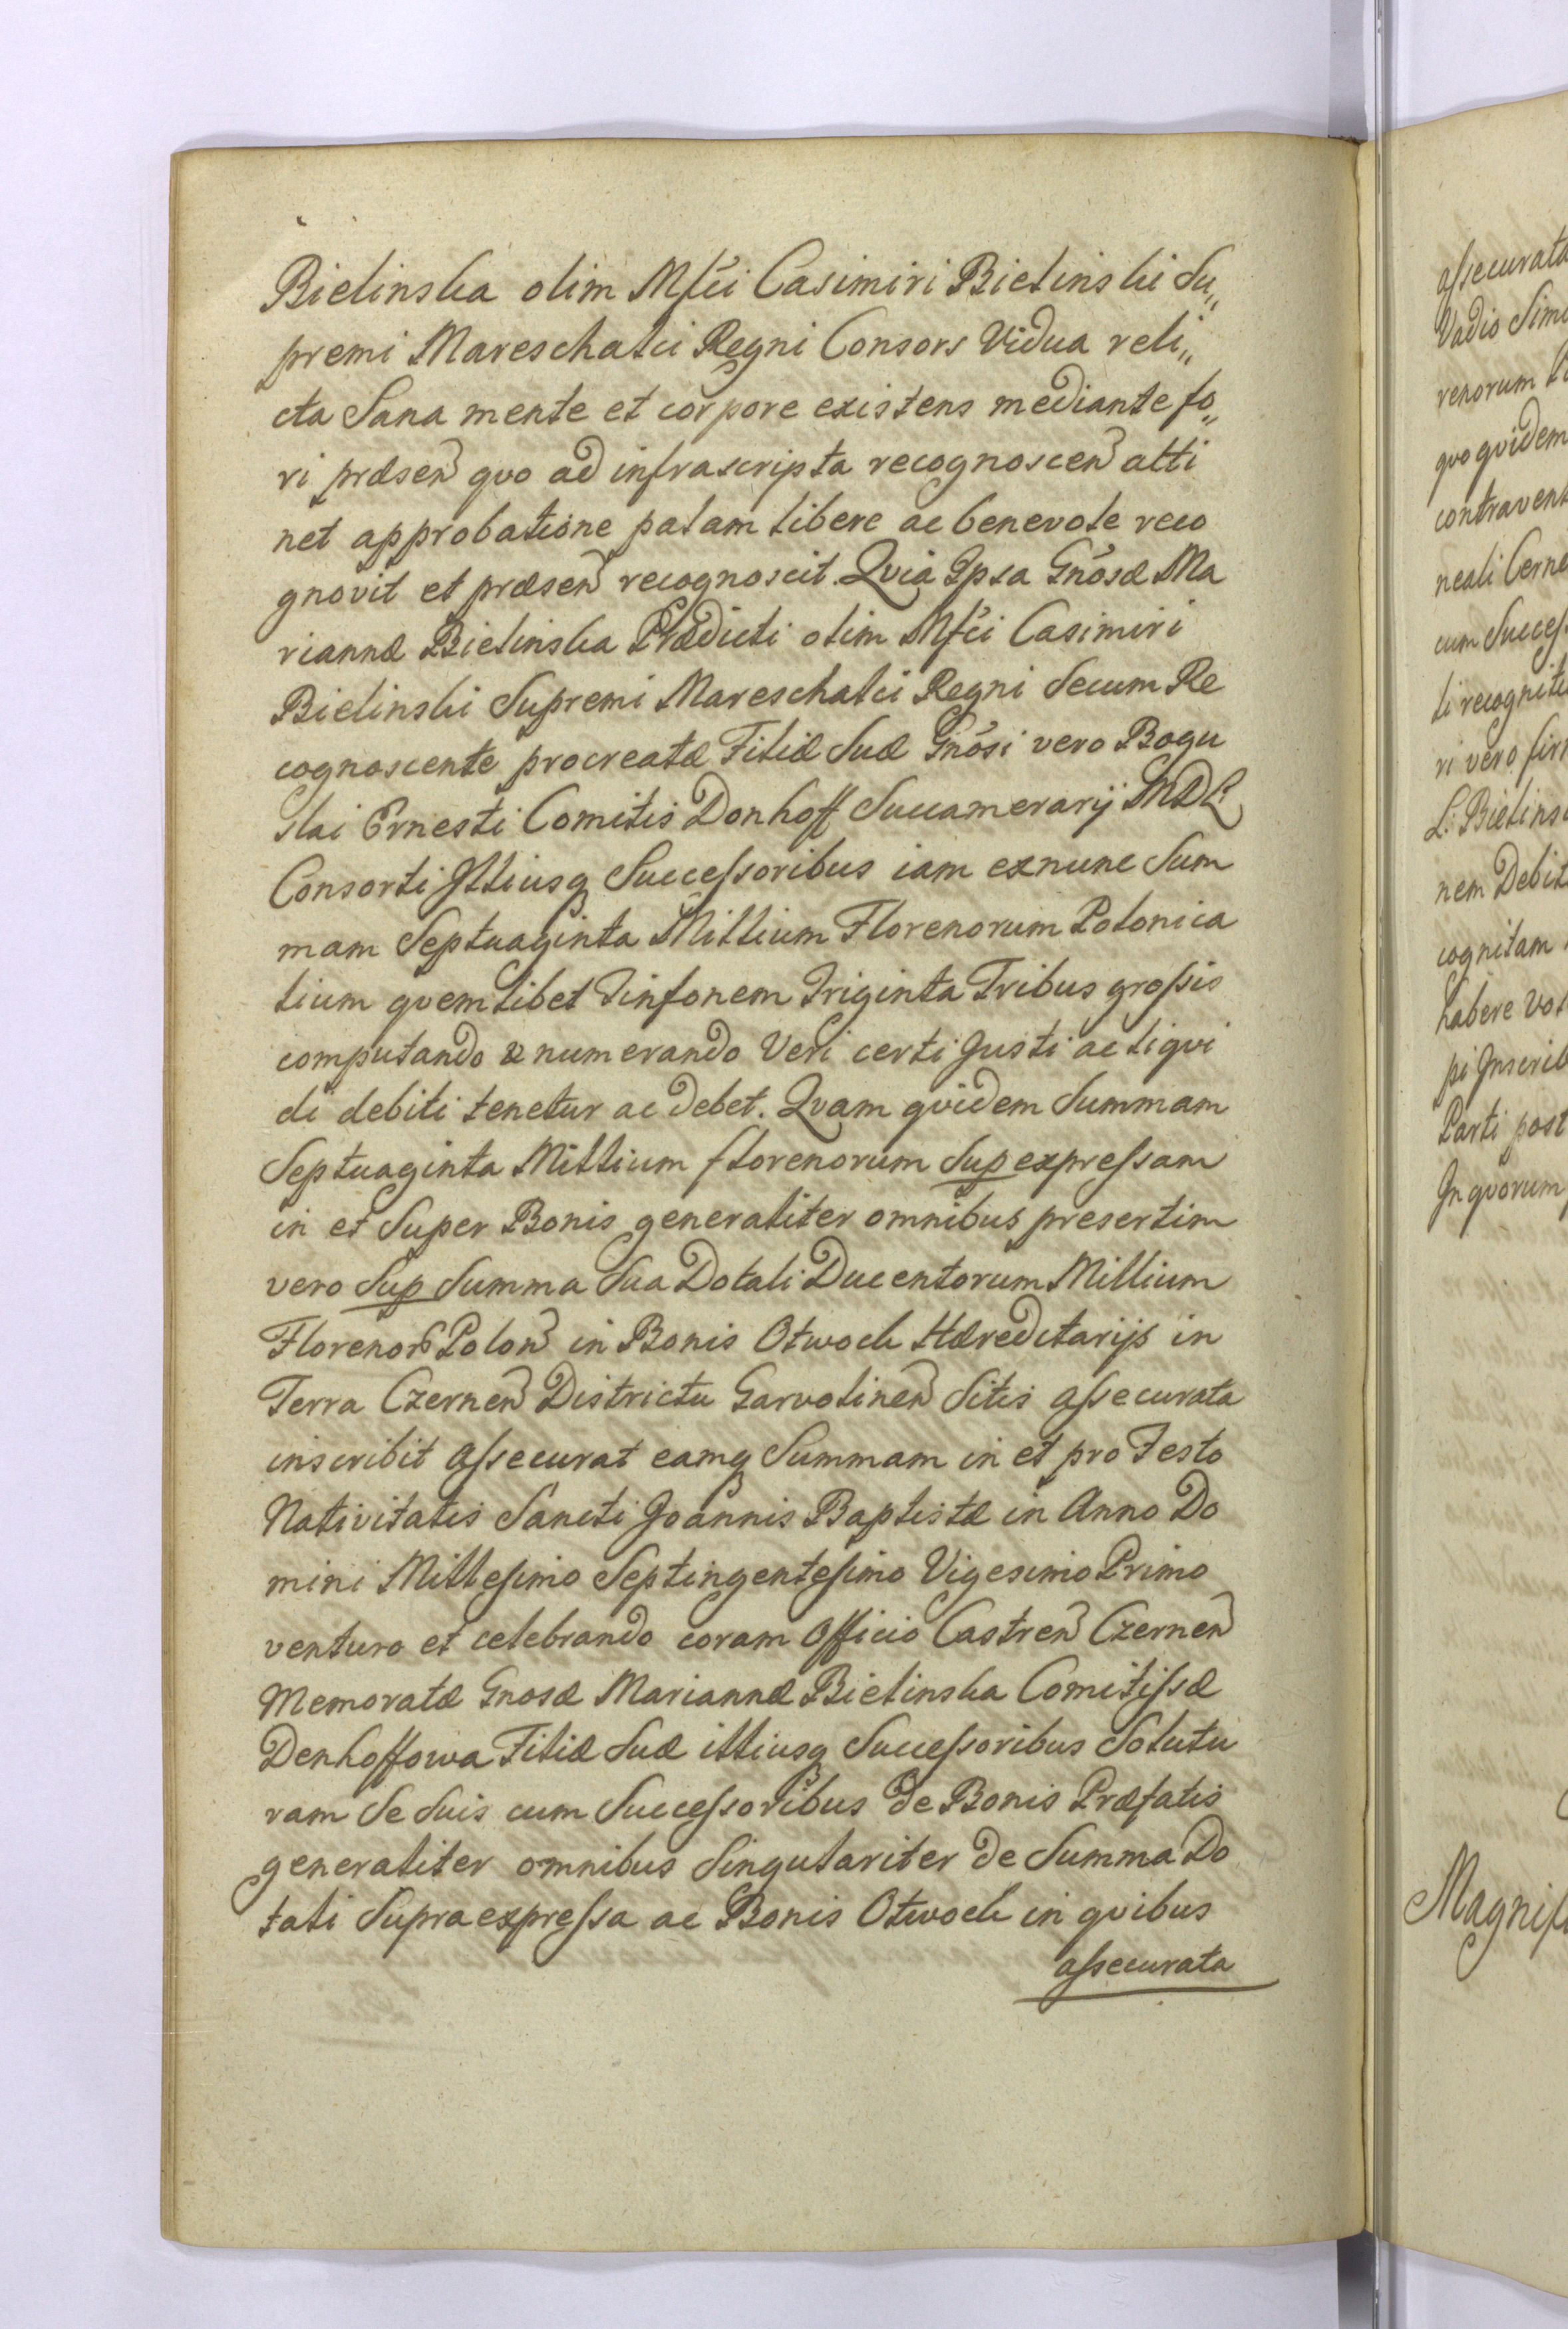 Bielinska olim Mfci Casimiri Bielinski Su„
premi Mareschalci Regni Consors Vidua reli„
cta Sana mente et corpore existens mediante fo„
ri præsen quo ad infrascripta recognoscen atti
net approbatione palam libere ac benevole reco
gnovit et præsen recognoscit. Quia Ipsa Gnosæ Ma
riannæ Bielinska Prædicti olim Mfci Casimiri
Bielinski Supremi Mareschalci Regni Secum Re
cognoscente procreatæ Filiæ Suæ Gnosi vero Bogu
slai Ernesti Comitis Donhoff Succamerarij MDL
Consorti Illiusq Successoribus iam exnunc Sum
mam Septuaginta Millium Florenorum Polonica
lium quemlibet Tinfonem Triginta Tribus grossis
computando & numerando Veri certi Justi ac liqui
di debiti tenetur ac debet. Quam quidem Summam
Septuaginta Millium florenorum Sup expressam
in et Super Bonis generaliter omnibus presertim
vero Sup Summa Sua Dotali Ducentorum Millium
Florenor Polon in Bonis Otwock Hæreditarijs in
Terra Czernen Districtu Garvolinen Sitis assecurata
inscribit assecurat eamq Summam in et pro Festo
Nativitatis Sancti Joannis Baptistæ in Anno Do
mini Millesimo Septingentesimo Vigesimo Primo
venturo et celebrando coram Officio Castren Czernen
Memoratæ Gnosæ Mariannæ Bielinska Comitissæ
Denhoffowa Filiæ Suæ illiusq Successoribus Solutu
ram Se Suis cum Successoribus de Bonis Præfatis
generaliter omnibus Singulariter de Summa Do
tali Supraexpressa ac Bonis Otwock in quibus
assecurata
assecurata
Vadio Simi
renorum
quo quidem
contravent
neali Czerne
cum Success
li recognit
ri vero fir
L. Bielins
nem Debit
cognitam
habere vol
pi Inscrib
Parti post
In quorum
Magnif